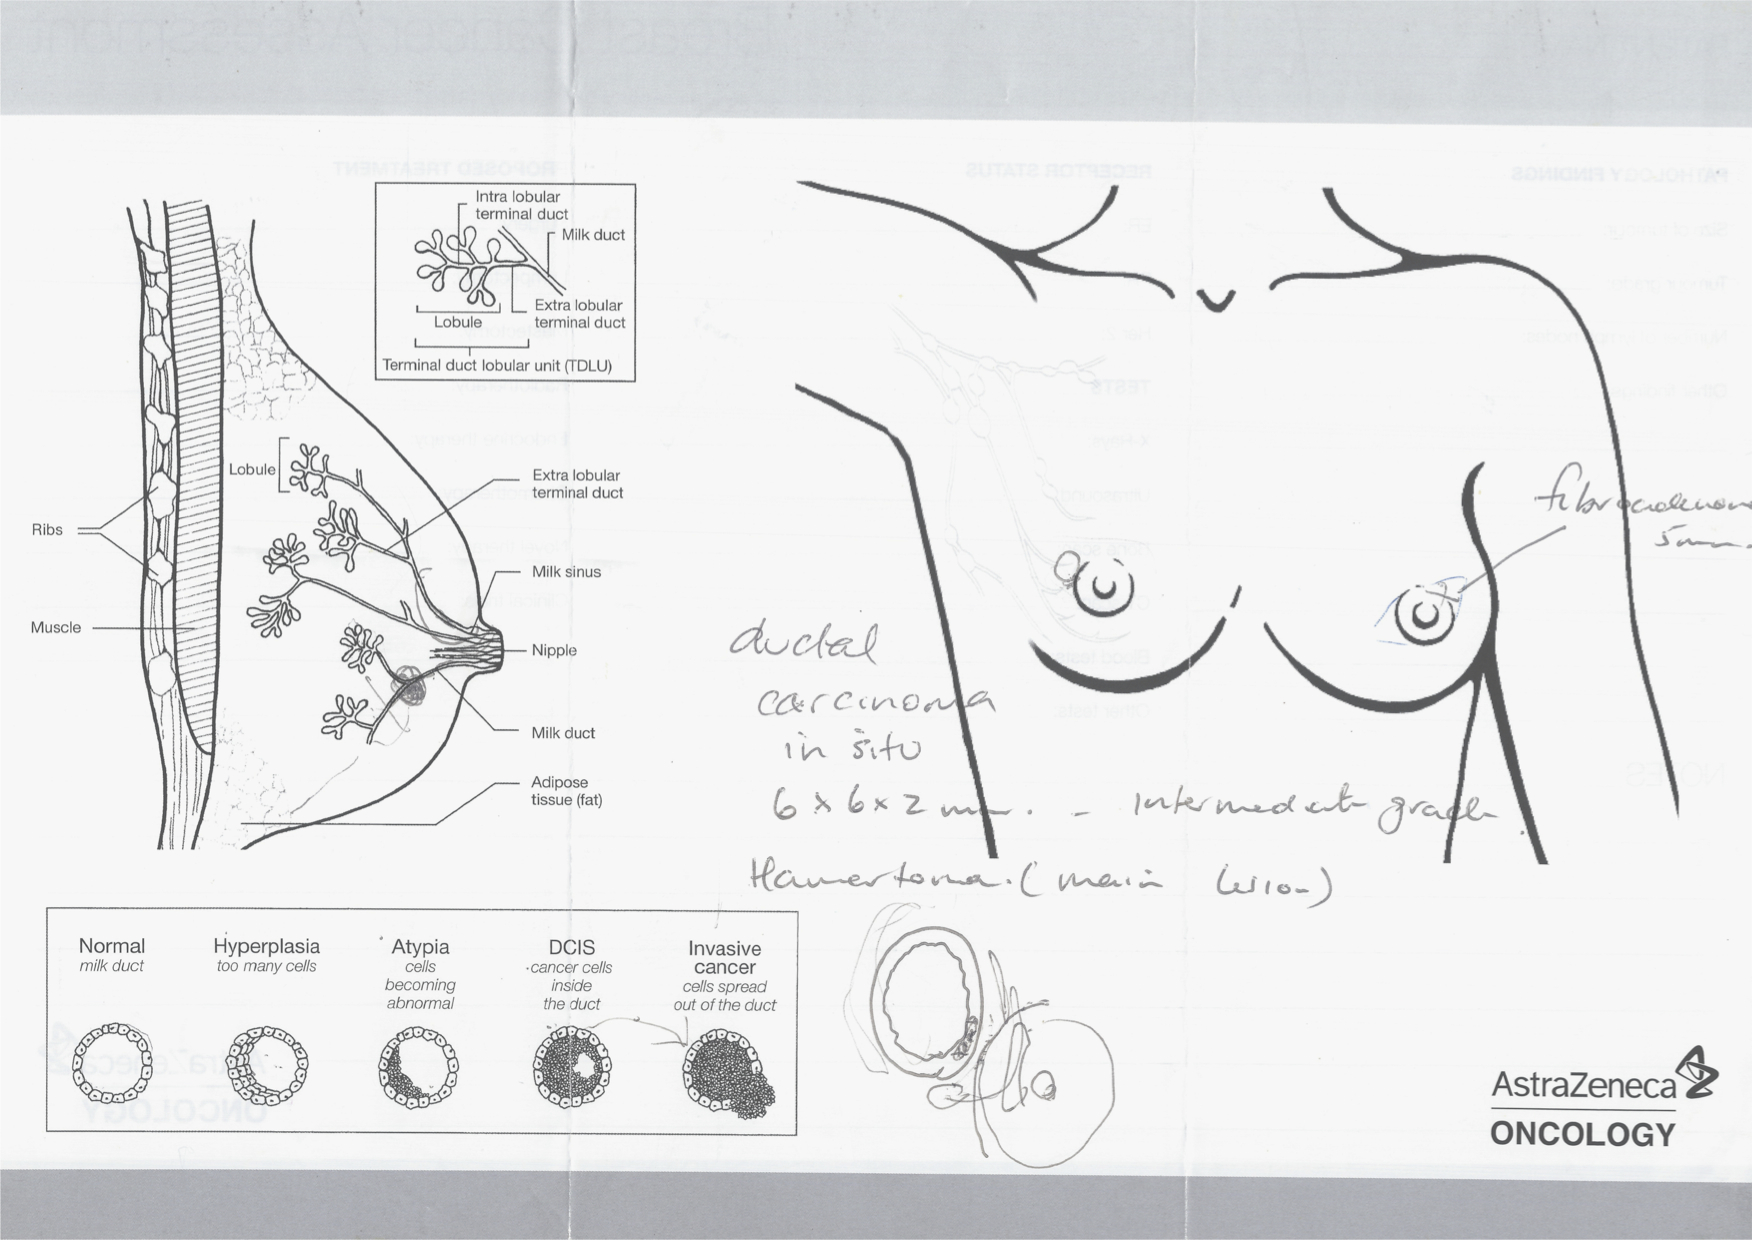 Intra lobular
terminal duct
Milk duct
Extra lobular
terminal duct
Lobule
Terminal duct lobular unit (TDLU)
Lobule
Extra lobular
terminal duct
Ribs
Milk sinus
Muscle
Nipple
Milk duct
Adipose
tissue (fat)
fibroadenoma
5mm.
ductal
carcinoma
in situ
6 x 6 x 2 mm. - Intermediate grade.
Hamertoma. (main lesion)
Normal
milk duct
Hyperplasia
too many cells
Atypia
cells
becoming
abnormal
DCIS
cancer cells
inside
the duct
Invasive
cancer
cells spread
out of the duct
AstraZeneca
ONCOLOGY
PATHOLOGY FINDINGS
RECEPTOR STATUS
TESTS
NOTES
AstraZeneca
ONCOLOGY